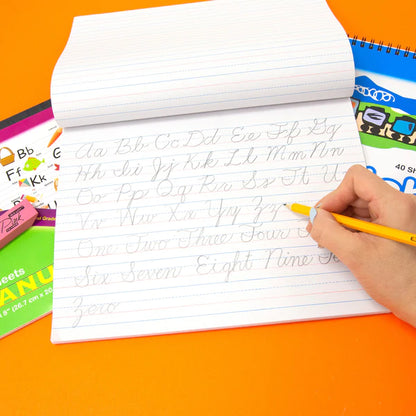 Aa Bb Cc Dd Ee Ff Gg
Hh Ii Jj Kk Ll Mm Nn
Oo Pp Qq Rr Ss Tt U
Vv Ww Xx Yy Zz
One Two Three Four
Six Seven Eight Nine Te
Zero
Bb
Ff
Kk
Pink
40 SH